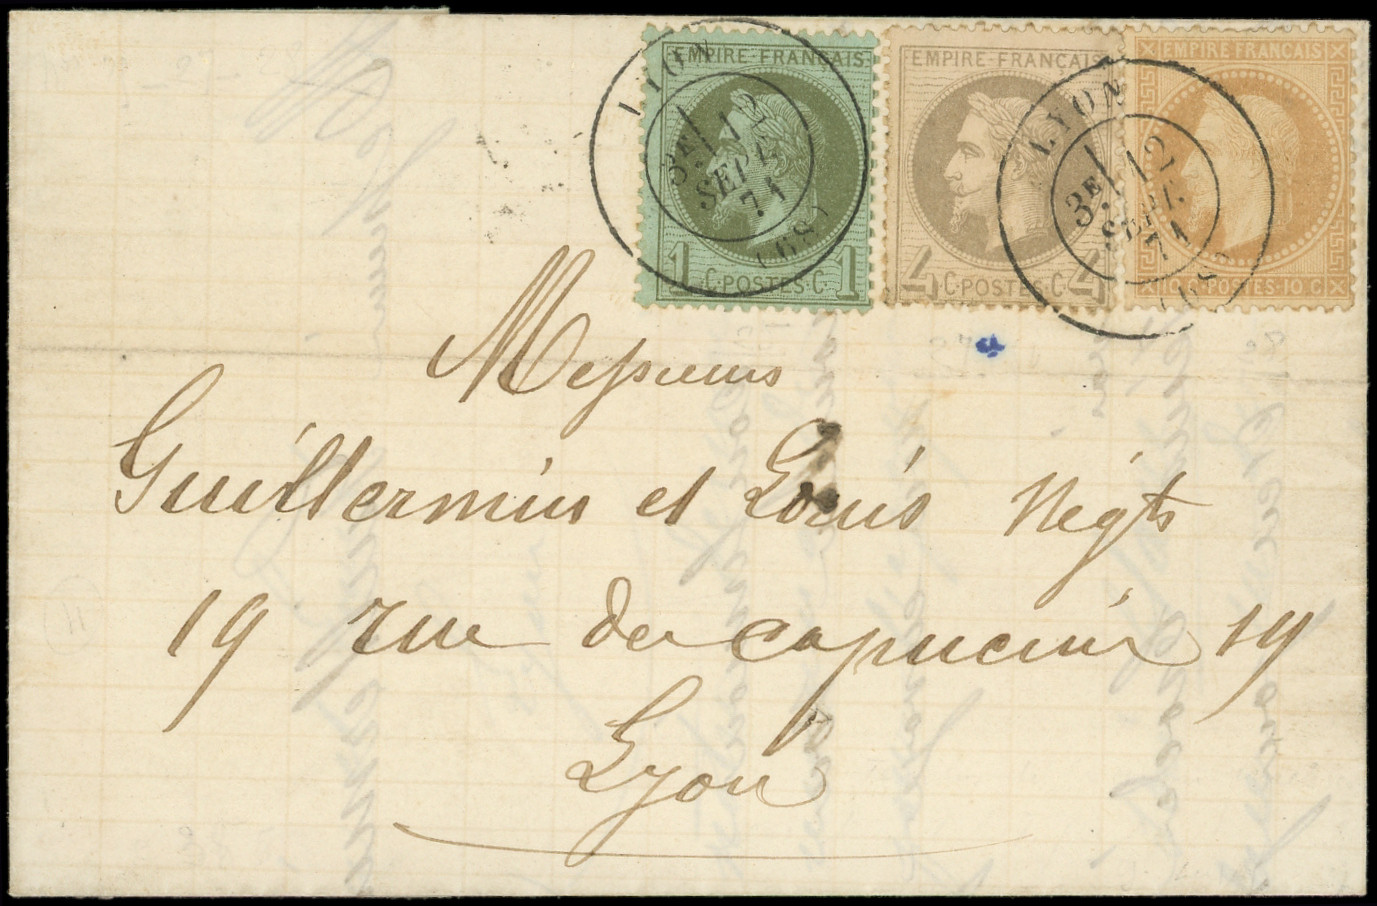 EMPIRE FRANÇAIS
1 C. POSTES C. 1
EMPIRE FRANÇAIS
4 C. POSTES C. 4
EMPIRE FRANÇAIS
10 C. POSTES 10 C.
LYON
3E/ 12
SEPT.
71
(68)
LYON
3E/ 12
SEPT.
71
(68)
Messieurs
Guillermin et Louis Négts
19 rue des capucins 19
Lyon